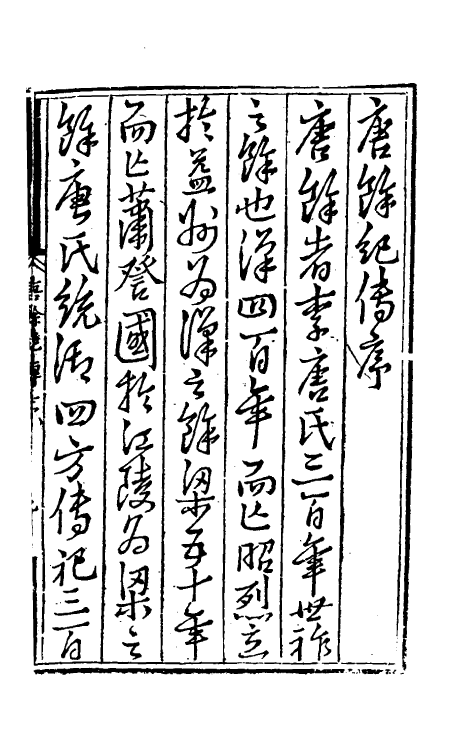 唐餘紀傳序
唐餘者李唐氏三百年世祚
之餘也漢四百年而亡昭烈立
於益州為漢之餘梁五十年
而亡蕭詧國於江陵為梁之
餘唐氏統御四方傳祀三百
唐餘紀傳序